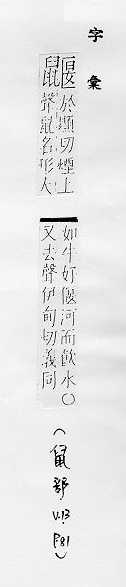 字彙
鼴 於顯切煙上
聲鼠名形大
如牛好偃河而飲水〇
又去聲伊甸切義同
(鼠部 V.13 P.81)